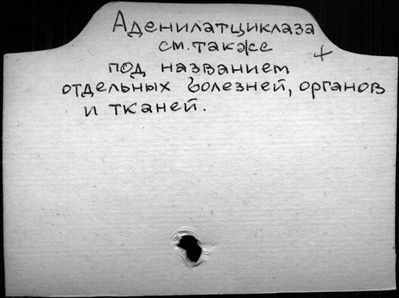 Аденилатциклаза
см. также +
под названием
отдельных болезней, органов
и тканей.